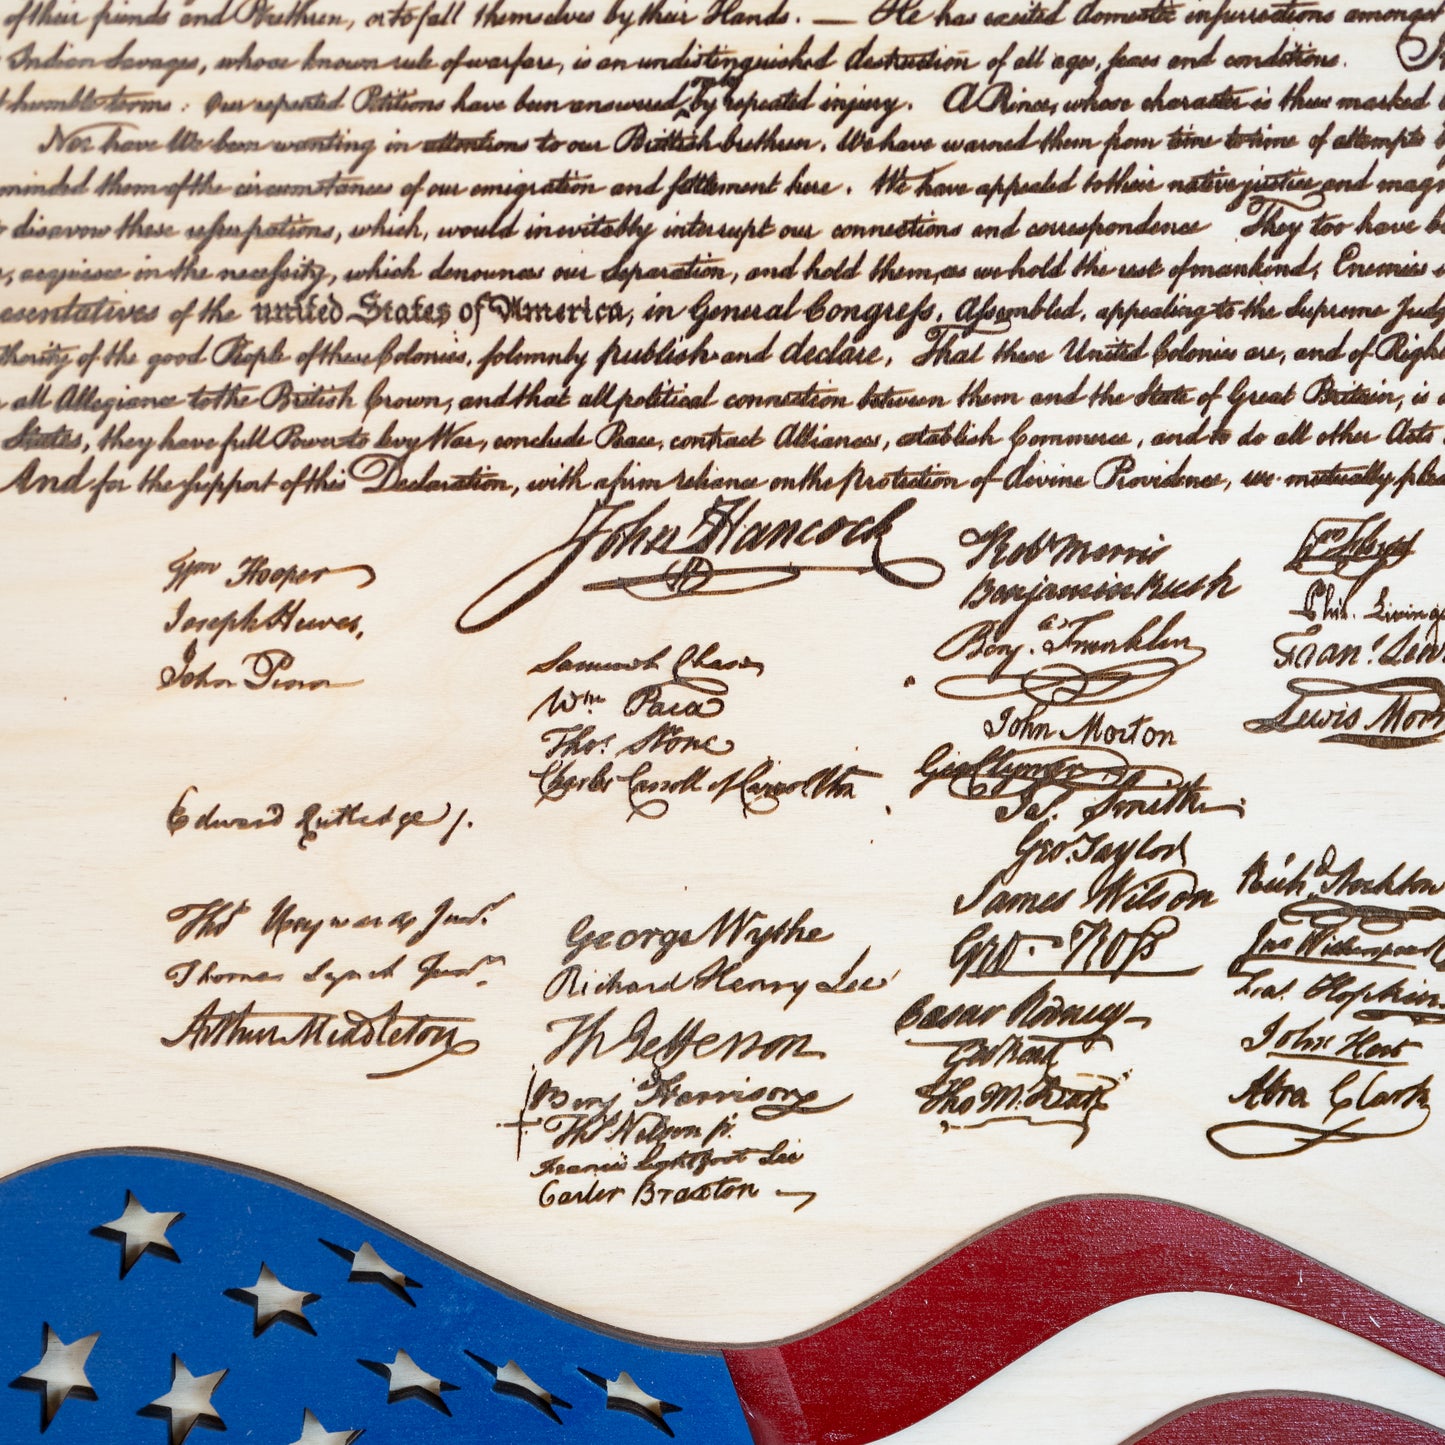 of their friends and Brethren, or to fall themselves by their Hands. — He has excited domestic insurrections amongst
Indian Savages, whose known rule of warfare, is an undistinguished destruction of all ages, sexes and conditions.
humble terms: Our repeated Petitions have been answered only by repeated injury. A Prince, whose character is thus marked
Nor have We been wanting in attentions to our Brittish brethren. We have warned them from time to time of attempts
minded them of the circumstances of our emigration and settlement here. We have appealed to their native justice and magn
disavow these usurpations, which, would inevitably interrupt our connections and correspondence They too have be
, acquiesce in the necessity, which denounces our Separation, and hold them, as we hold the rest of mankind, Enemies
esentatives of the united States of America, in General Congress, Assembled, appealing to the Supreme Judg
thority of the good People of these Colonies, solemnly publish and declare, That these United Colonies are, and of Right
all Allegiance to the British Crown, and that all political connection between them and the State of Great Britain, is
States, they have full Power to levy War, conclude Peace, contract Alliances, establish Commerce, and to do all other Acts
And for the support of this Declaration, with a firm reliance on the protection of divine Providence, we mutually ple
Wm Hooper
Joseph Hewes,
John Penn
Edward Rutledge /.
Thos Heyward Junr.
Thomas Lynch Junr.
Arthur Middleton
John Hancock
Samuel Chase
Wm Paca
Thos. Stone
Charles Carroll of Carrollton
George Wythe
Richard Henry Lee
Th Jefferson
Benj Harrison
Ths Nelson jr.
Francis Lightfoot Lee
Carter Braxton
Robt Morris
Benjamin Rush
Benj. Franklin
John Morton
Geo Clymer
Jas. Smith
Geo. Taylor
James Wilson
Geo. Ross
Caesar Rodney
Geo Read
Tho M:Kean
Wm Floyd
Phil. Living
Frans. Lewi
Lewis Morr
Richd. Stockton
Jno Witherspoon
Fras. Hopkins
John Hart
Abra Clark